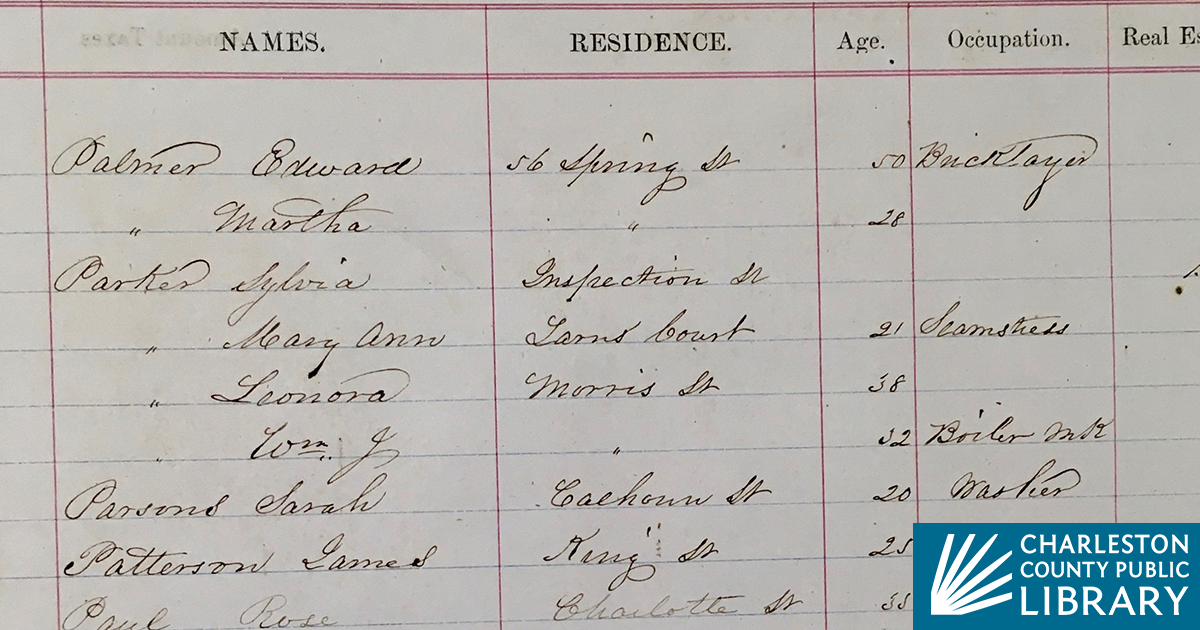 NAMES. RESIDENCE. Age. Occupation. Real Es
Palmer Edward 56 Spring St 50 Bricklayer
" Martha " 28
Parker Sylvia Inspection St
" Mary Ann Court 21 Seamstress
" Leonora Morris St 38
" Wm. J " 32 Boiler MK
Parsons Sarah Calhoun St 20 Washer
Patterson James King St 25
Paul Rose Charlotte St 35
CHARLESTON
COUNTY PUBLIC
LIBRARY